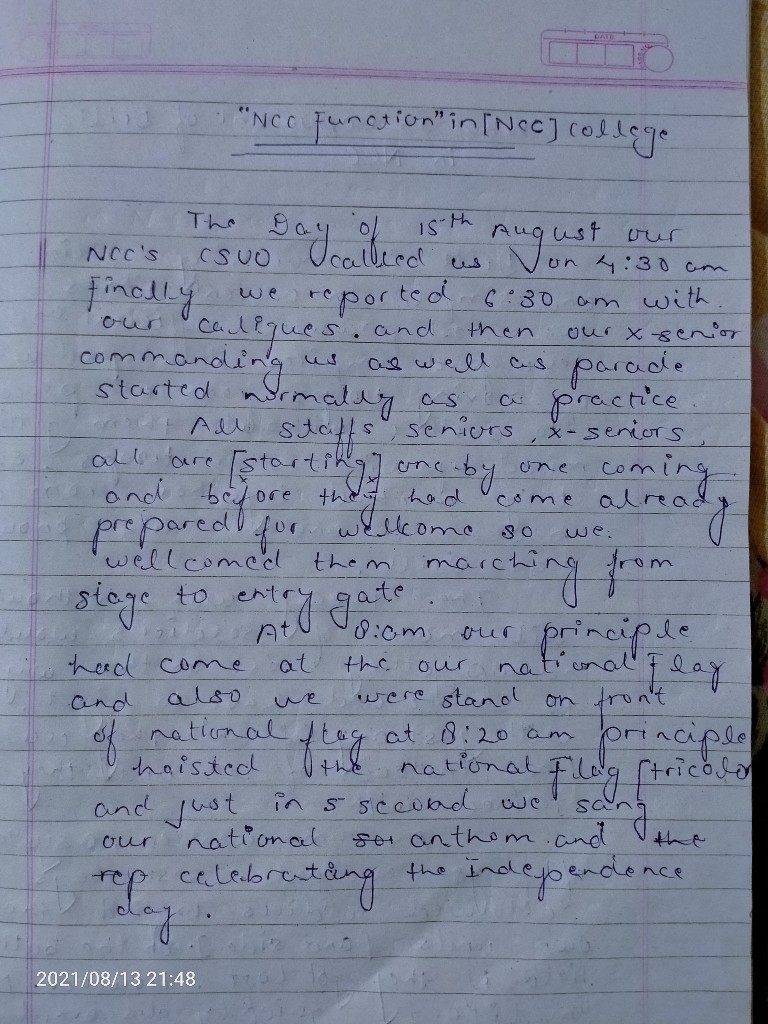 DATE
"NCC Function" in [NCC] college
The Day of 15th August our
NCC's CSUO called us on 4:30 am
finally we reported 6:30 am with.
our caligues. and then our x-senior
commanding us as well as parade
started normally as a practice.
All staffs, seniors, x-seniors,
all are [starting] one-by one coming.
and before they had come already
prepared for wellcome so we.
wellcomed them marching from
stage to entry gate.
At 8:am our principle
had come at the our national flag
and also we were stand on front
of national flag at 8:20 am principle
hoisted the national Flag [tricolor
and just in 5 second we sang
our national anthom. and the
rep celebrating the Independence
day.
2021/08/13 21:48